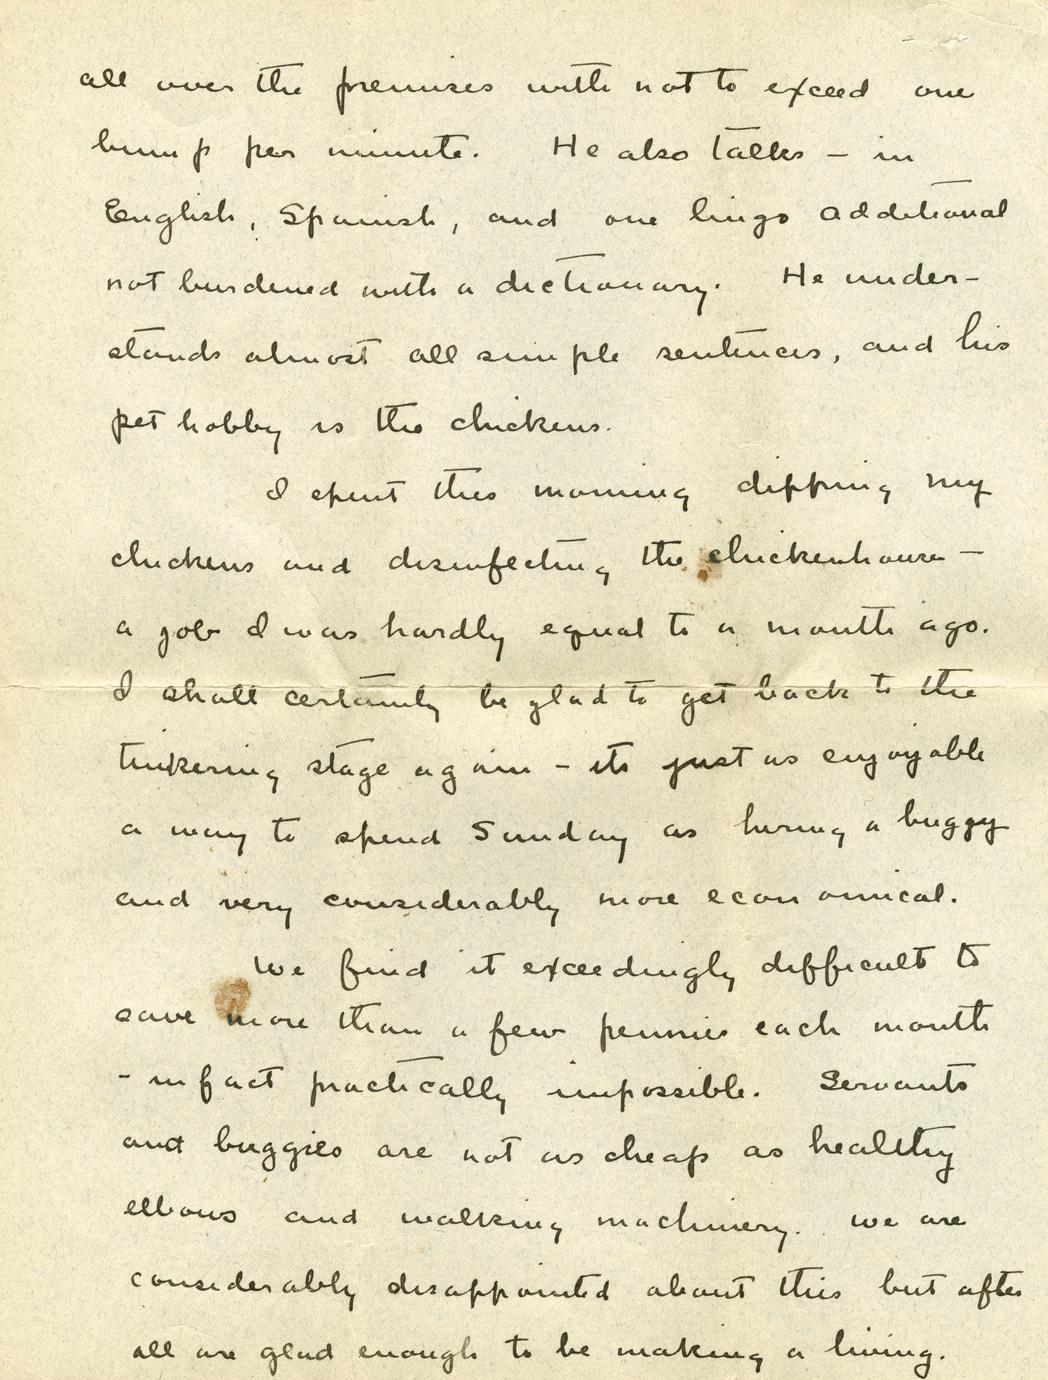 all over the premises with not to exceed one
bump per minute. He also talks - in
English, Spanish, and one lingo additional
not burdened with a dictionary. He under-
stands almost all simple sentences, and his
pet hobby is the chickens.
I spent this morning dipping my
chickens and disinfecting the chickenhouse -
a job I was hardly equal to a month ago.
I shall certainly be glad to get back to the
tinkering stage again - its just as enjoyable
a way to spend Sunday as hiring a buggy
and very considerably more economical.
We find it exceedingly difficult to
save more than a few pennies each month
- in fact practically impossible. Servants
and buggies are not as cheap as healthy
elbows and walking machinery. We are
considerably disappointed about this but after
all are glad enough to be making a living.